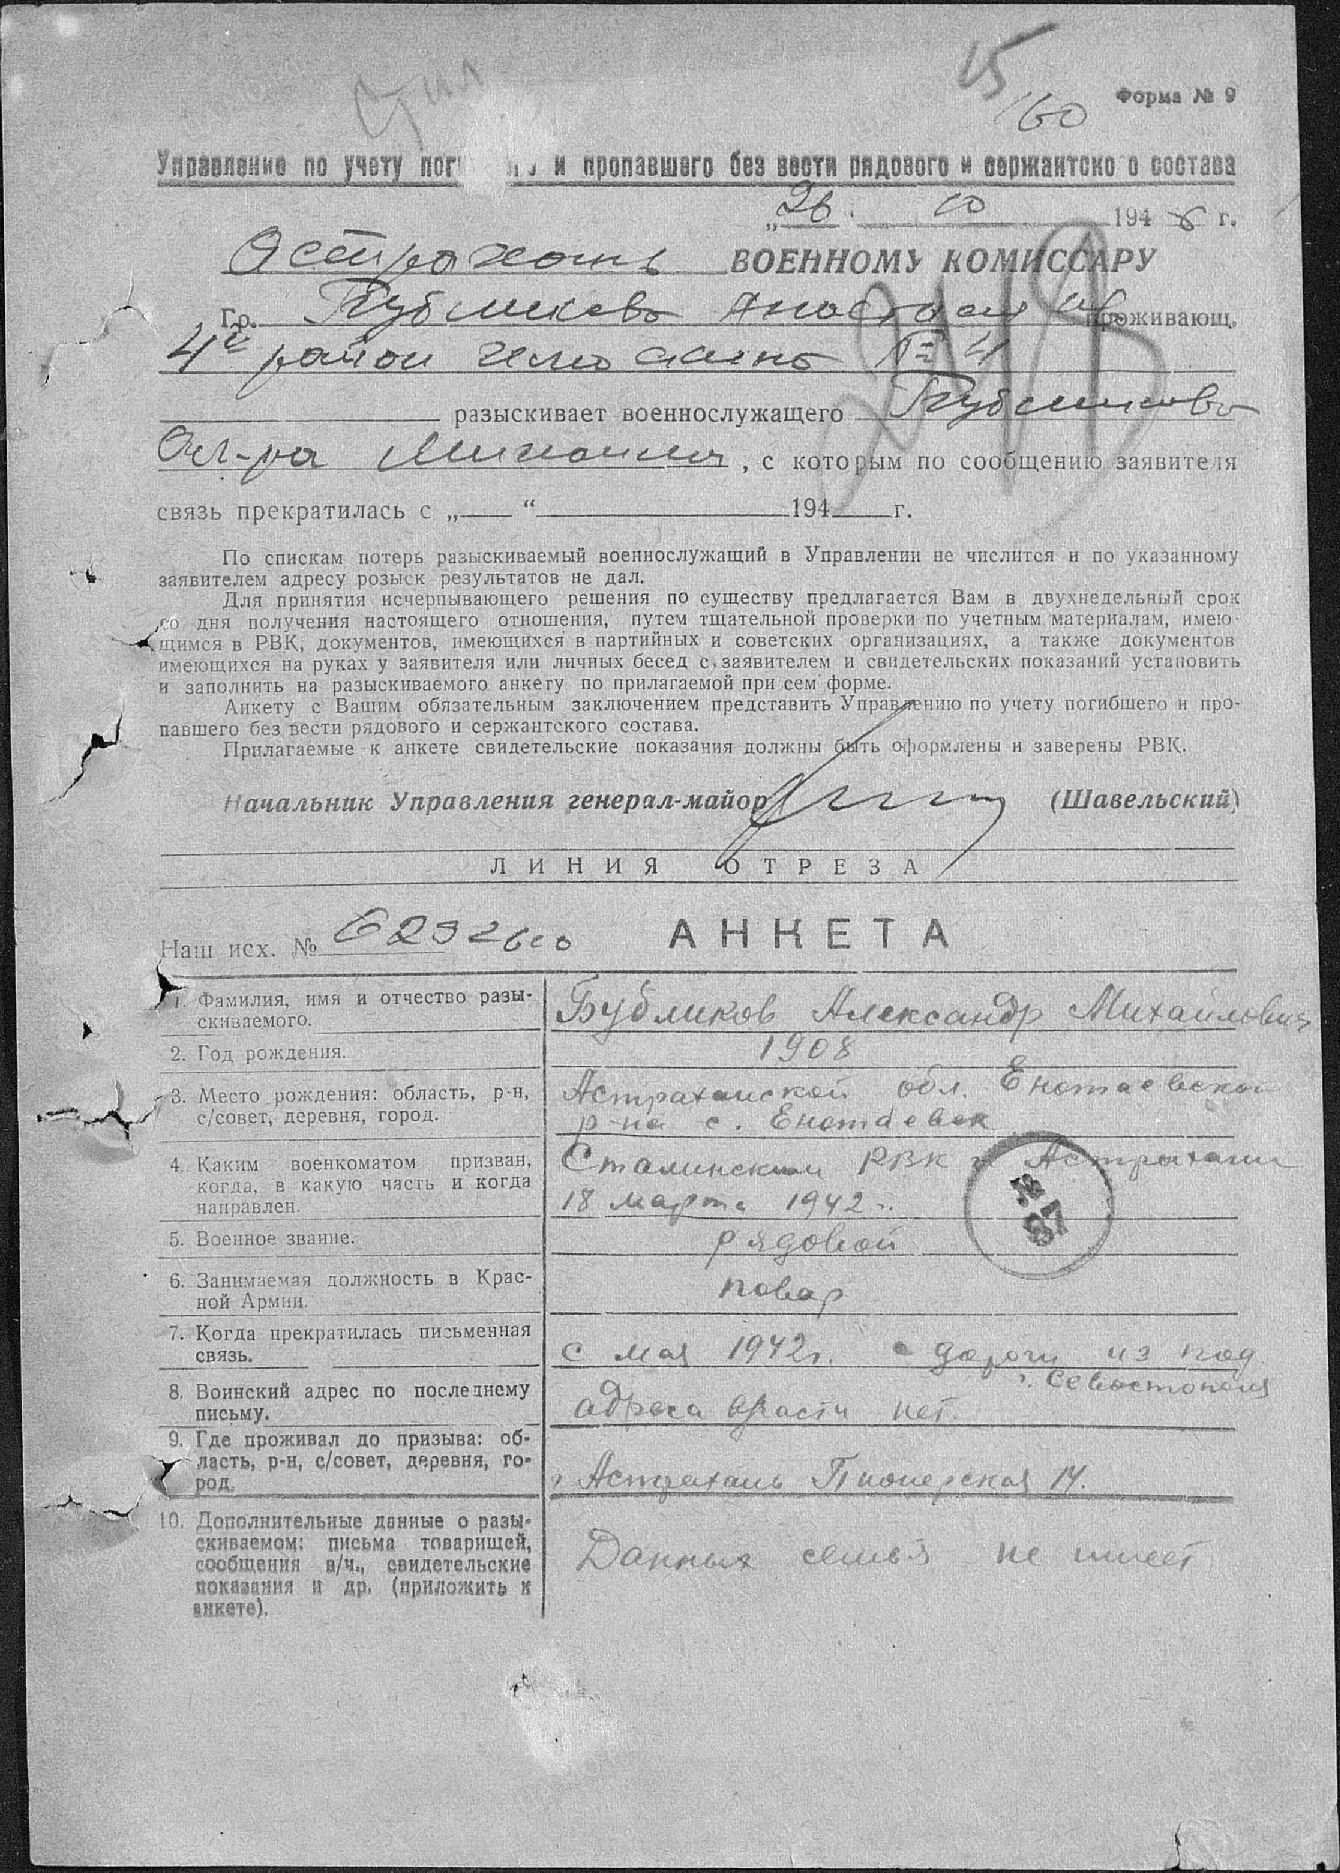 15
160
Форма № 9
Управление по учету и пропавшего без вести рядового и сержантско о состава
„26. 10 194 6 г.
Астрахань ВОЕННОМУ КОМИССАРУ
Гр. Бубликова проживающ.
4й район № 4
разыскивает военнослужащего Бубликова
Ал-ра Михаил , с которым по сообщению заявителя
связь прекратилась с „ “ 194 г.
По спискам потерь разыскиваемый военнослужащий в Управлении не числится и по указанному
заявителем адресу розыск результатов не дал.
Для принятия исчерпывающего решения по существу предлагается Вам в двухнедельный срок
со дня получения настоящего отношения, путем тщательной проверки по учетным материалам, имею-
щимся в РВК, документов, имеющихся в партийных и советских организациях, а также документов
имеющихся на руках у заявителя или личных бесед с заявителем и свидетельских показаний установить
и заполнить на разыскиваемого анкету по прилагаемой при сем форме.
Анкету с Вашим обязательным заключением представить Управлению по учету погибшего и про-
павшего без вести рядового и сержантского состава.
Прилагаемые к анкете свидетельские показания должны быть оформлены и заверены РВК.
Начальник Управления генерал-майор (Шавельский)
ЛИНИЯ ОТРЕЗА
Наш исх. № АНКЕТА
1. Фамилия, имя и отчество разы-
скиваемого.
Бубликов Александр Михайлович
2. Год рождения.
1908
3. Место рождения: область, р-н,
с/совет, деревня, город.
Астраханской обл. Енотаевского
р-на с. Енотаевск
4. Каким военкоматом призван,
когда, в какую часть и когда
направлен.
Сталинским РВК г Астрахани
18 марта 1942 г.
5. Военное звание.
рядовой
6. Занимаемая должность в Крас-
ной Армии.
повар
7. Когда прекратилась письменная
связь.
с мая 1942г. с дороги из под
г. Севастополя
8. Воинский адрес по последнему
письму.
адреса части нет.
9. Где проживал до призыва: об-
ласть, р-н, с/совет, деревня, го-
род.
г Астрахань Пионерская 14.
10. Дополнительные данные о разы-
скиваемом: письма товарищей,
сообщения в/ч., свидетельские
показания и др. (приложить к
анкете).
Данных семья не имеет